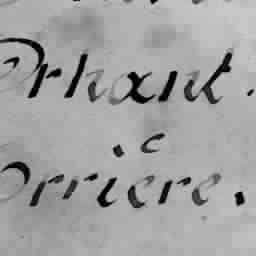 Orhant.
Orriere.